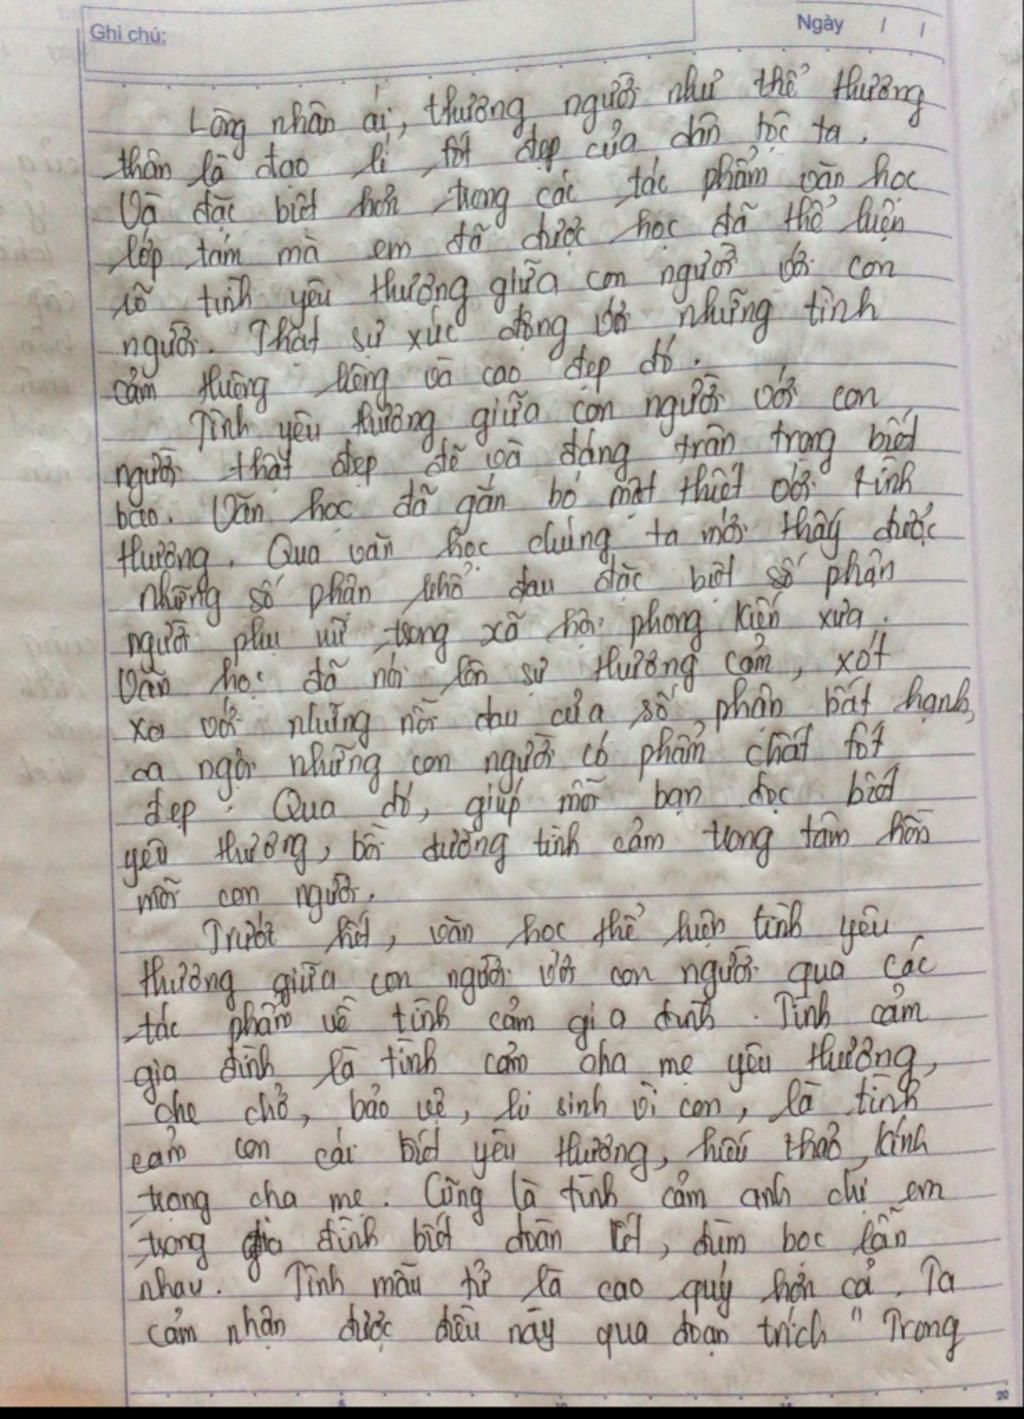 Ghi chú:
Ngày / /
Lòng nhân ái, thương người như thể thương
thân là đạo lí tốt đẹp của dân tộc ta.
Và đặc biệt hơn trong các tác phẩm văn học
lớp tám mà em đã được học đã thể hiện
rõ tình yêu thương giữa con người với con
người. Thật sự xúc động với những tình
cảm thiêng liêng và cao đẹp đó.
Tình yêu thương giữa con người với con
người thật đẹp đẽ và đáng trân trọng biết
bao. Văn học đã gắn bó mật thiết với tình
thương. Qua văn học chúng ta mới thấy được
những số phận khổ đau đặc biệt số phận
người phụ nữ trong xã hội phong kiến xưa.
Văn học đã nói lên sự thương cảm, xót
xa với những nỗi đau của số phận bất hạnh,
ca ngợi những con người có phẩm chất tốt
đẹp. Qua đó, giúp mỗi bạn đọc biết
yêu thương, bồi dưỡng tình cảm trong tâm hồn
mỗi con người.
Trước hết, văn học thể hiện tình yêu
thương giữa con người với con người qua các
tác phẩm về tình cảm gia đình. Tình cảm
gia đình là tình cảm cha mẹ yêu thương,
che chở, bảo vệ, hi sinh vì con, là tình
cảm con cái biết yêu thương, hiếu thảo, kính
trọng cha mẹ. Cũng là tình cảm anh chị em
trong gia đình biết đoàn kết, đùm bọc lẫn
nhau. Tình mẫu tử là cao quý hơn cả. Ta
cảm nhận được điều này qua đoạn trích " Trong
20